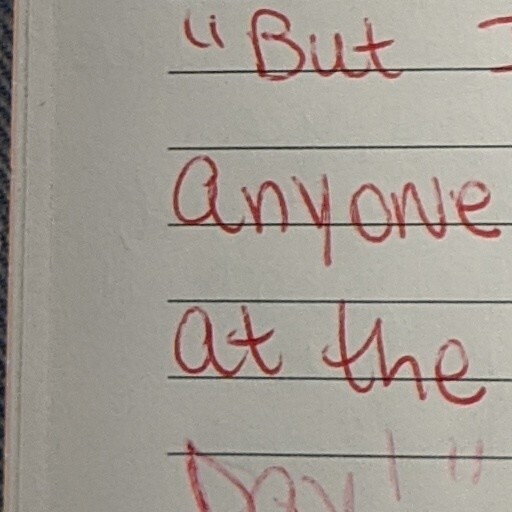 "But I
anyone
at the
Day!"